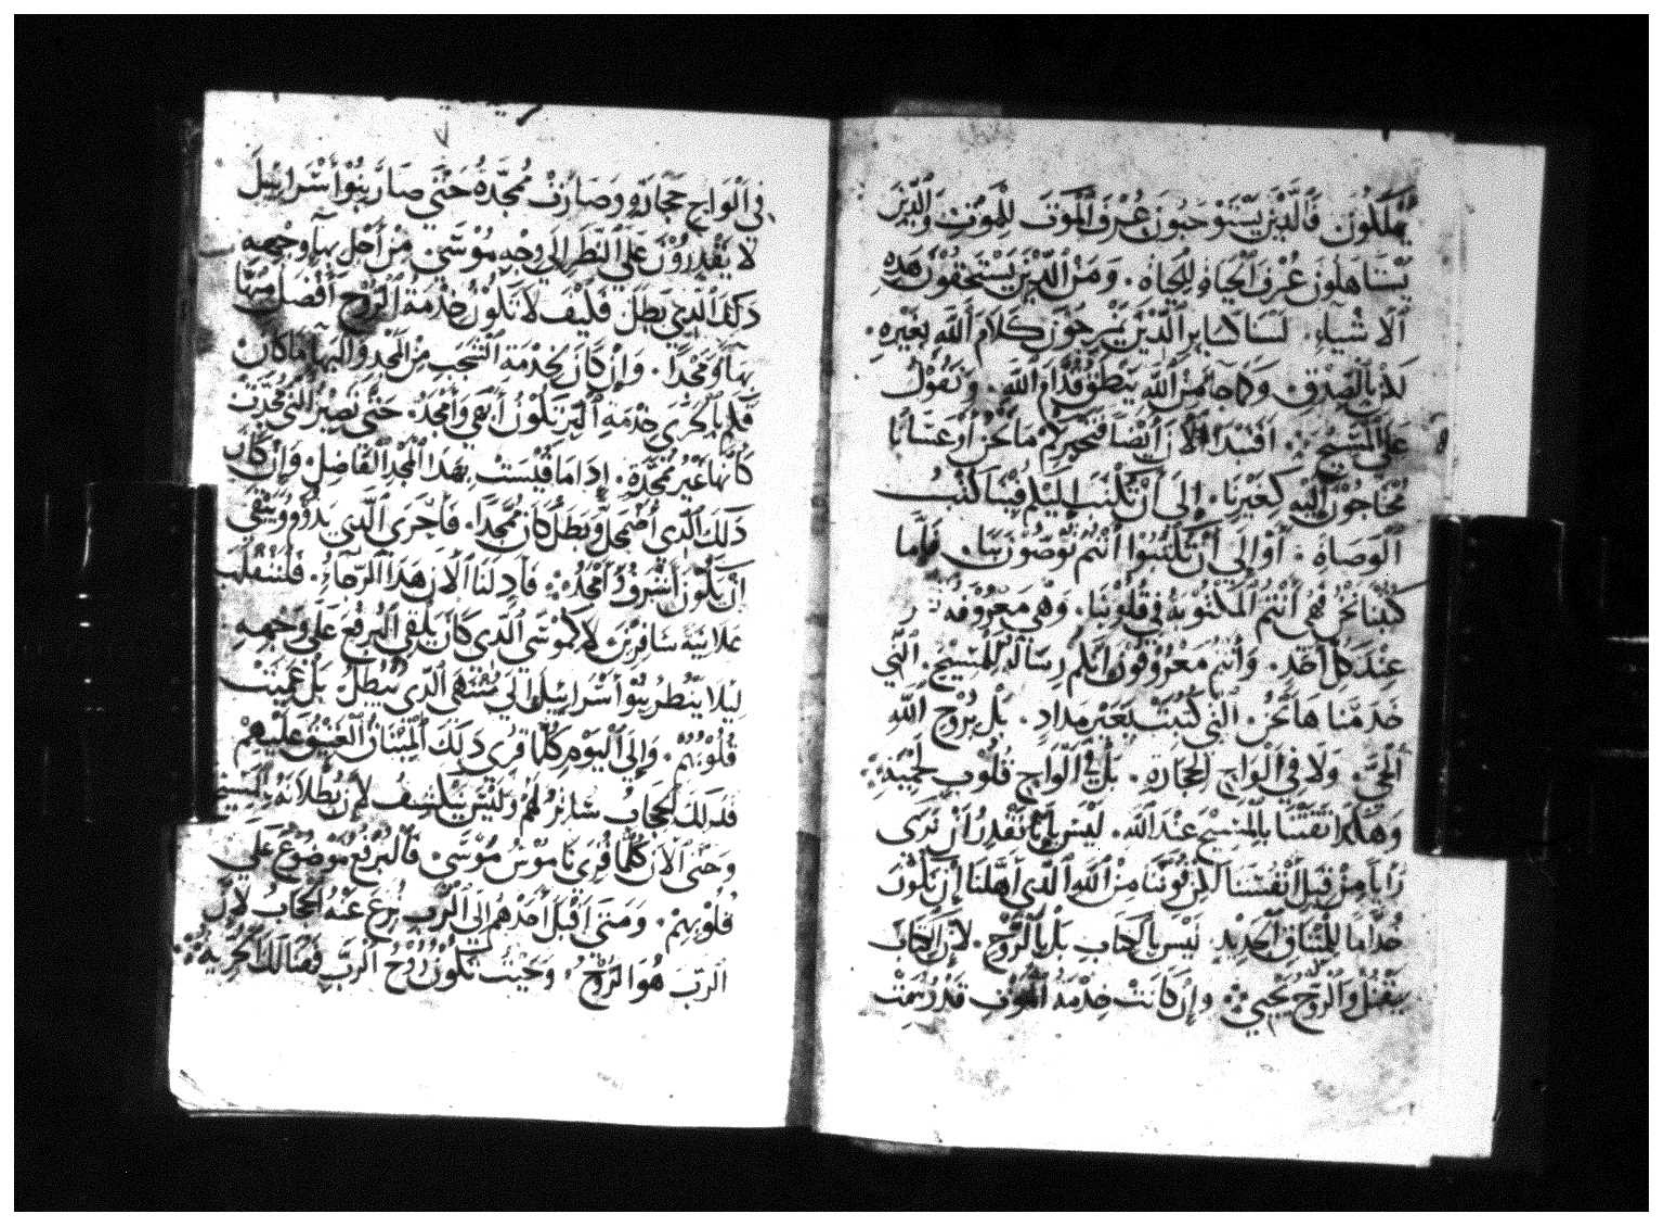 يهلكون فالذين يستوجبون عرف الموت للموت والذين
يستاهلون عرف الحياة للحياة. ومن الذين يستحقون هذه
الاشياء. لسنا كساير الذين يمزجون كلام الله بغيره.
لكن بالصدق. وكما من الله ينطق قدام الله. ونقول
على المسيح ؞ افنبدا الان ايضا فنخبركم ما نحن او عسانا
محتاجون اليه كغيرنا. الى ان تكتب اليكم فينا كتب
الوصاة. او الى ان تكتبوا انتم توصون بنا. فاما
كتبنا نحن فهى انتم المكتوبة في قلوبنا. وهي معروفة
عند كل احد. وانتم معروفون انكم رسالة للمسيح. التي
خدمنا ها نحن. التي كتبت بغير مداد. بل بروح الله
الحي. ولا في الواح الحجارة. بل في الواح قلوب لحمية ؞
وهكذا ثقتنا بالمسيح عند الله. ليس بانا نقدر ان نرى
رايا من قبل انفسنا لكن قوتنا من الله الذي اهلنا ان نكون
خداما للميثاق الجديد ليس بالكتاب بل بالروح. لان الكتاب
يقتل والروح يحيي ؞ وان كانت خدمة الموت قد رسمت
في الواح حجارة وصارت ممجدة حتى صار بنوا اسراييل
لا يقدرون على النظر الى وجه موسى. من اجل بهآ وجهه
ذلك الذي بطل فكيف لا تكون خدمة الروح افضل منها
بهآ ومجدا. وان كان لخدمة الشجب من المجد والبها ما كان
فكم بالحرى خدمة البر تكون ابهى وامجد. حتى تصير التي مجدت
كانها غير ممجدة. اذا ما قيست بهذا المجد الفاضل. وان كان
ذلك الذي اضمحل وبطل كان ممجدا. فاحرى الذي يدوم ويبقى
ان يكون اشرف وامجد ؞ فاذ لنا الان هذا الرجآء. فلننقلب
علانية سافرين لا كموسى الذي كان يلقى البرقع على وجهه
ليلا ينظر بنوا اسراييل الى منتهى الذي يبطل. بل عميت
قلوبهم. والى اليوم كلما قرى ذلك الميثاق العتيق عليهم
فذلك الحجاب ساتر لهم وليس يكشف لان بطلانه بالمسيح
وحتى الان كلما قرى ناموس موسى. فالبرقع موضوع على
قلوبهم. ومتى اقبل احدهم الى الرب نزع عنه الحجاب لان
الرب هو الروح. وحيث تكون روح الرب فهنالك الحرية ؞